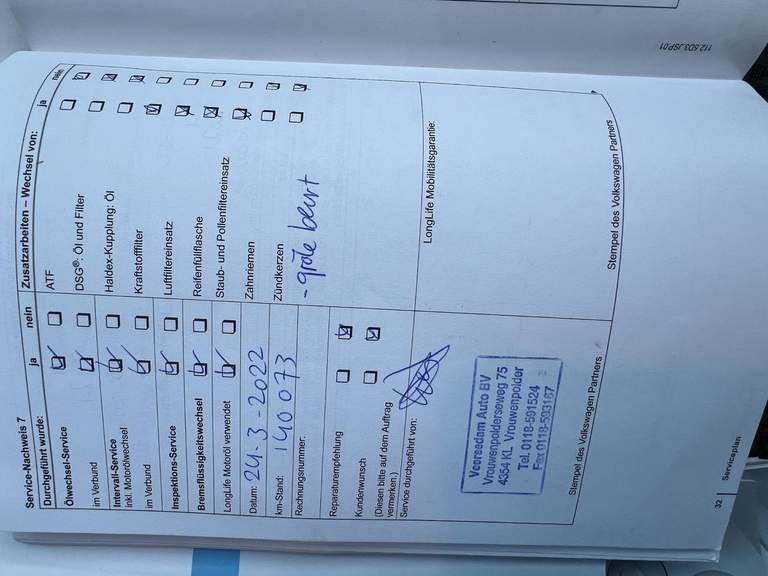 112.5D3.JSP.01
Service-Nachweis 7
Durchgeführt wurde:
ja nein
Ölwechsel-Service
im Verbund
Intervall-Service
inkl. Motorölwechsel
im Verbund
Inspektions-Service
Bremsflüssigkeitswechsel
LongLife Motoröl verwendet
Datum: 24-3-2022
km-Stand: 140 073
Rechnungsnummer:
Reparaturempfehlung
Kundenwunsch
(Diesen bitte auf dem Auftrag
vermerken.)
Service durchgeführt von:
Veersedam Auto BV
Vrouwenpolderseweg 75
4354 KL Vrouwenpolder
Tel. 0118-591524
Fax 0118-593167
Stempel des Volkswagen Partners
Zusatzarbeiten – Wechsel von:
ja nein
ATF
DSG®: Öl und Filter
Haldex-Kupplung: Öl
Kraftstofffilter
Luftfiltereinsatz
Reifenfüllflasche
Staub- und Pollenfiltereinsatz
Zahnriemen
Zündkerzen
- grote beurt
LongLife Mobilitätsgarantie:
Stempel des Volkswagen Partners
32 Serviceplan